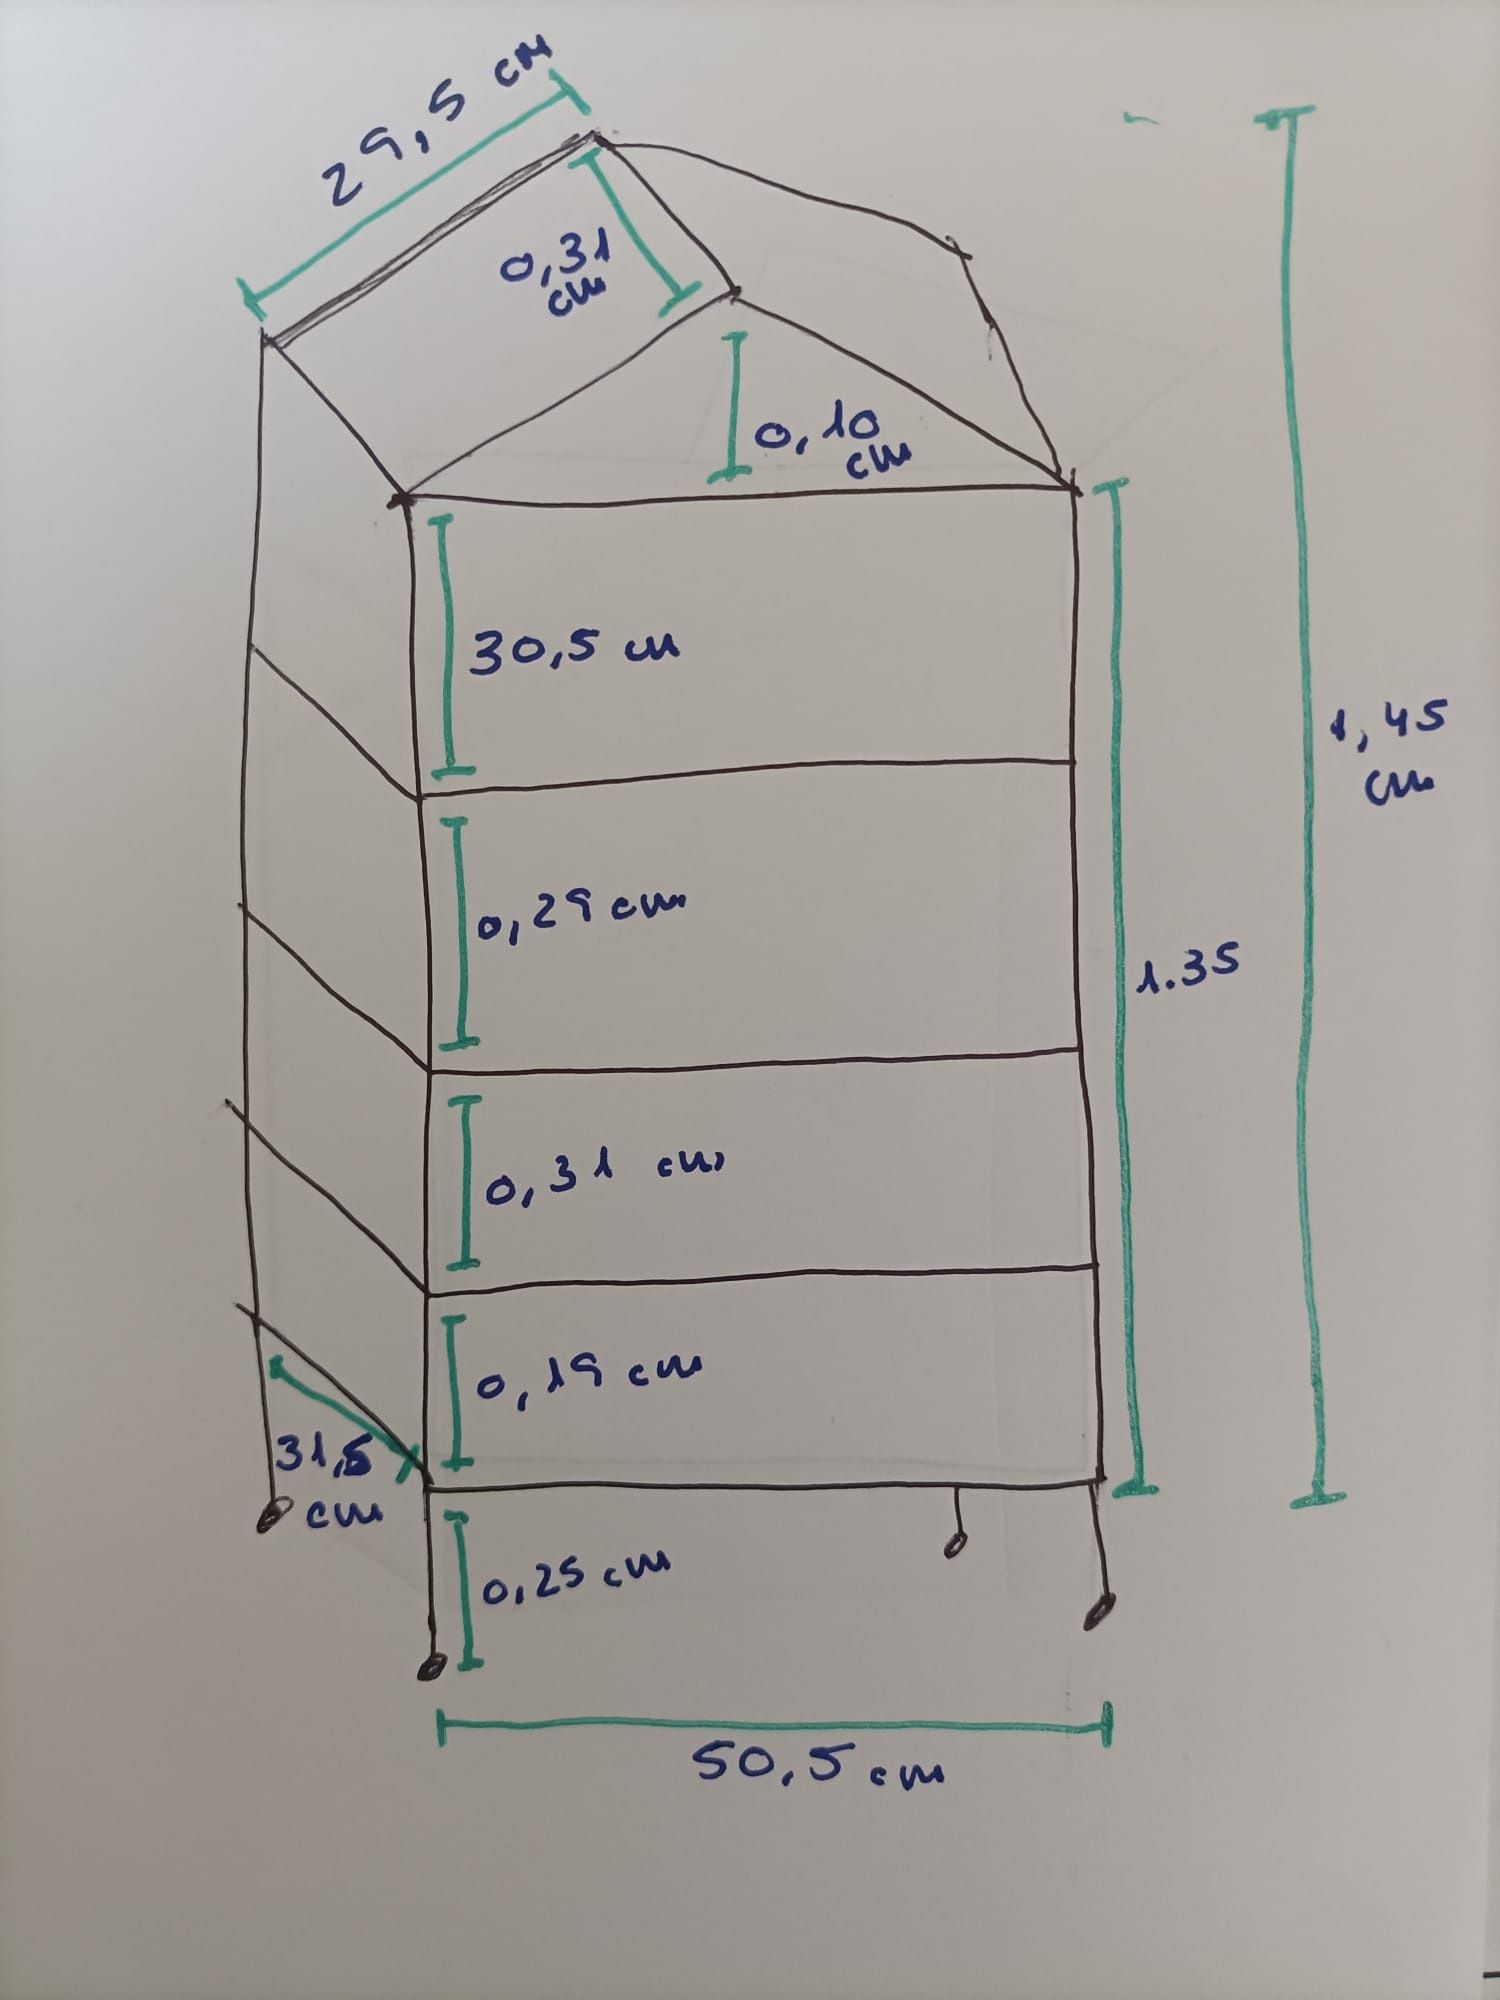 29,5 cm
0,31
cm
0,10
cm
30,5 cm
1,45
cm
0,29 cm
1.35
0,31 cm
0,19 cm
31,5
cm
0,25 cm
50,5 cm